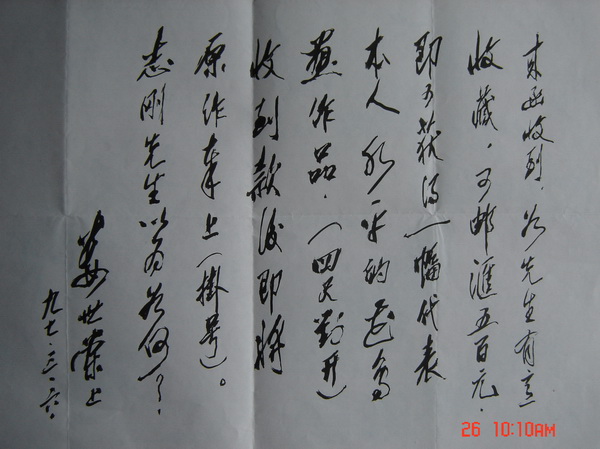 来函收到，如先生有意
收藏，可邮汇五百元，
即可获得一幅代表
本人水平的花鸟
画作品，（四尺對开）
收到款后即将
原作奉上（掛号）。
志刚先生以为如何？
娄世棠上
九七.三.六.
26 10:10AM